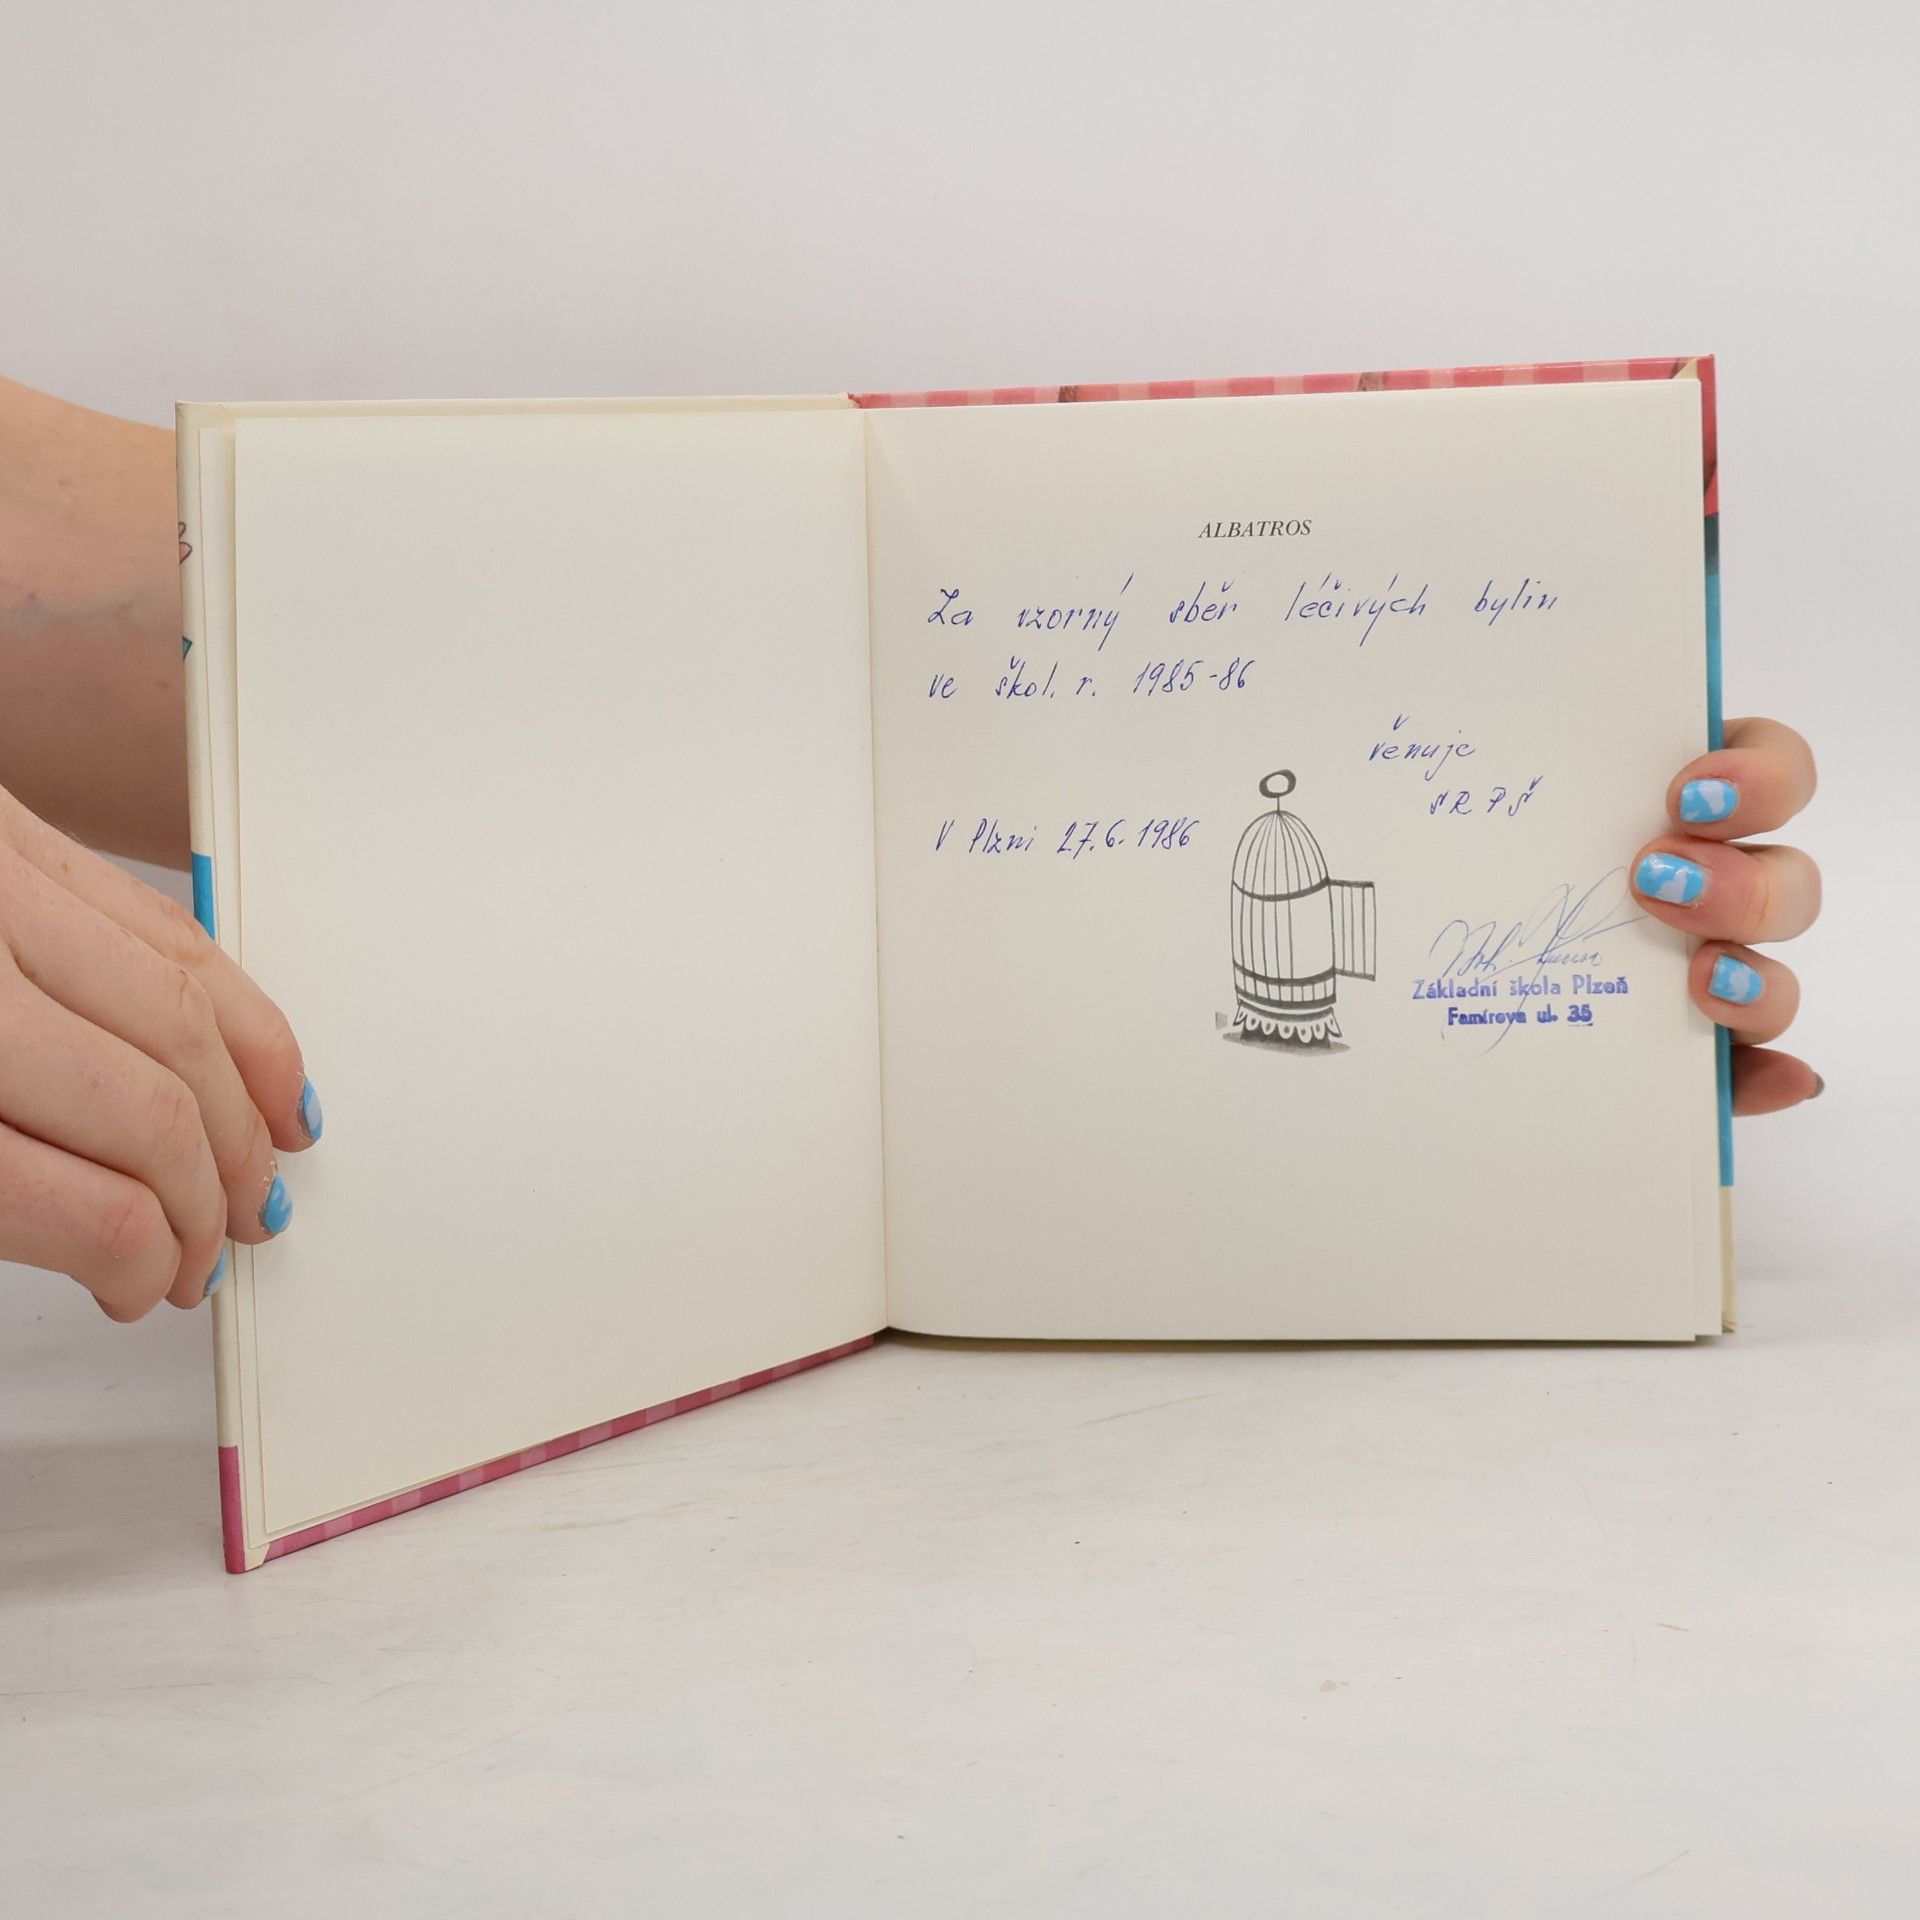 ALBATROS
Za vzorný sběr léčivých bylin
ve škol. r. 1985-86
věnuje
SRPŠ
V Plzni 27.6.1986
Základní škola Plzeň
Famírova ul. 35